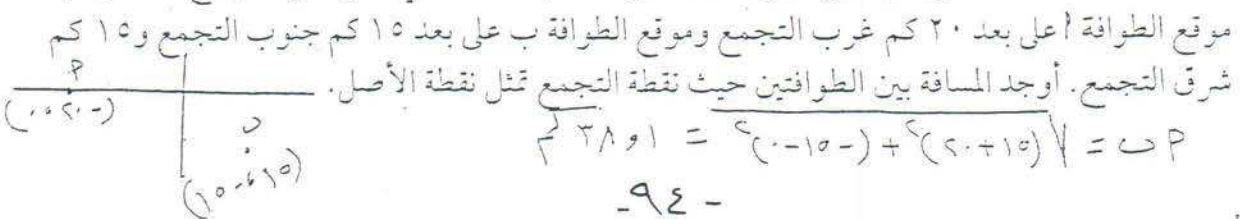 موقع الطوافة أ على بعد ٢٠ كم غرب التجمع وموقع الطوافة ب على بعد ١٥ كم جنوب التجمع و١٥ كم
شرق التجمع. أوجد المسافة بين الطوافتين حيث نقطة التجمع تمثل نقطة الأصل.
أ
(-٢٠، ٠)
ب
(١٥، -١٥)
أ ب = √(١٥+٢٠)² + (-١٥-٠)² = ٣٨و١ كم
-٩٤-